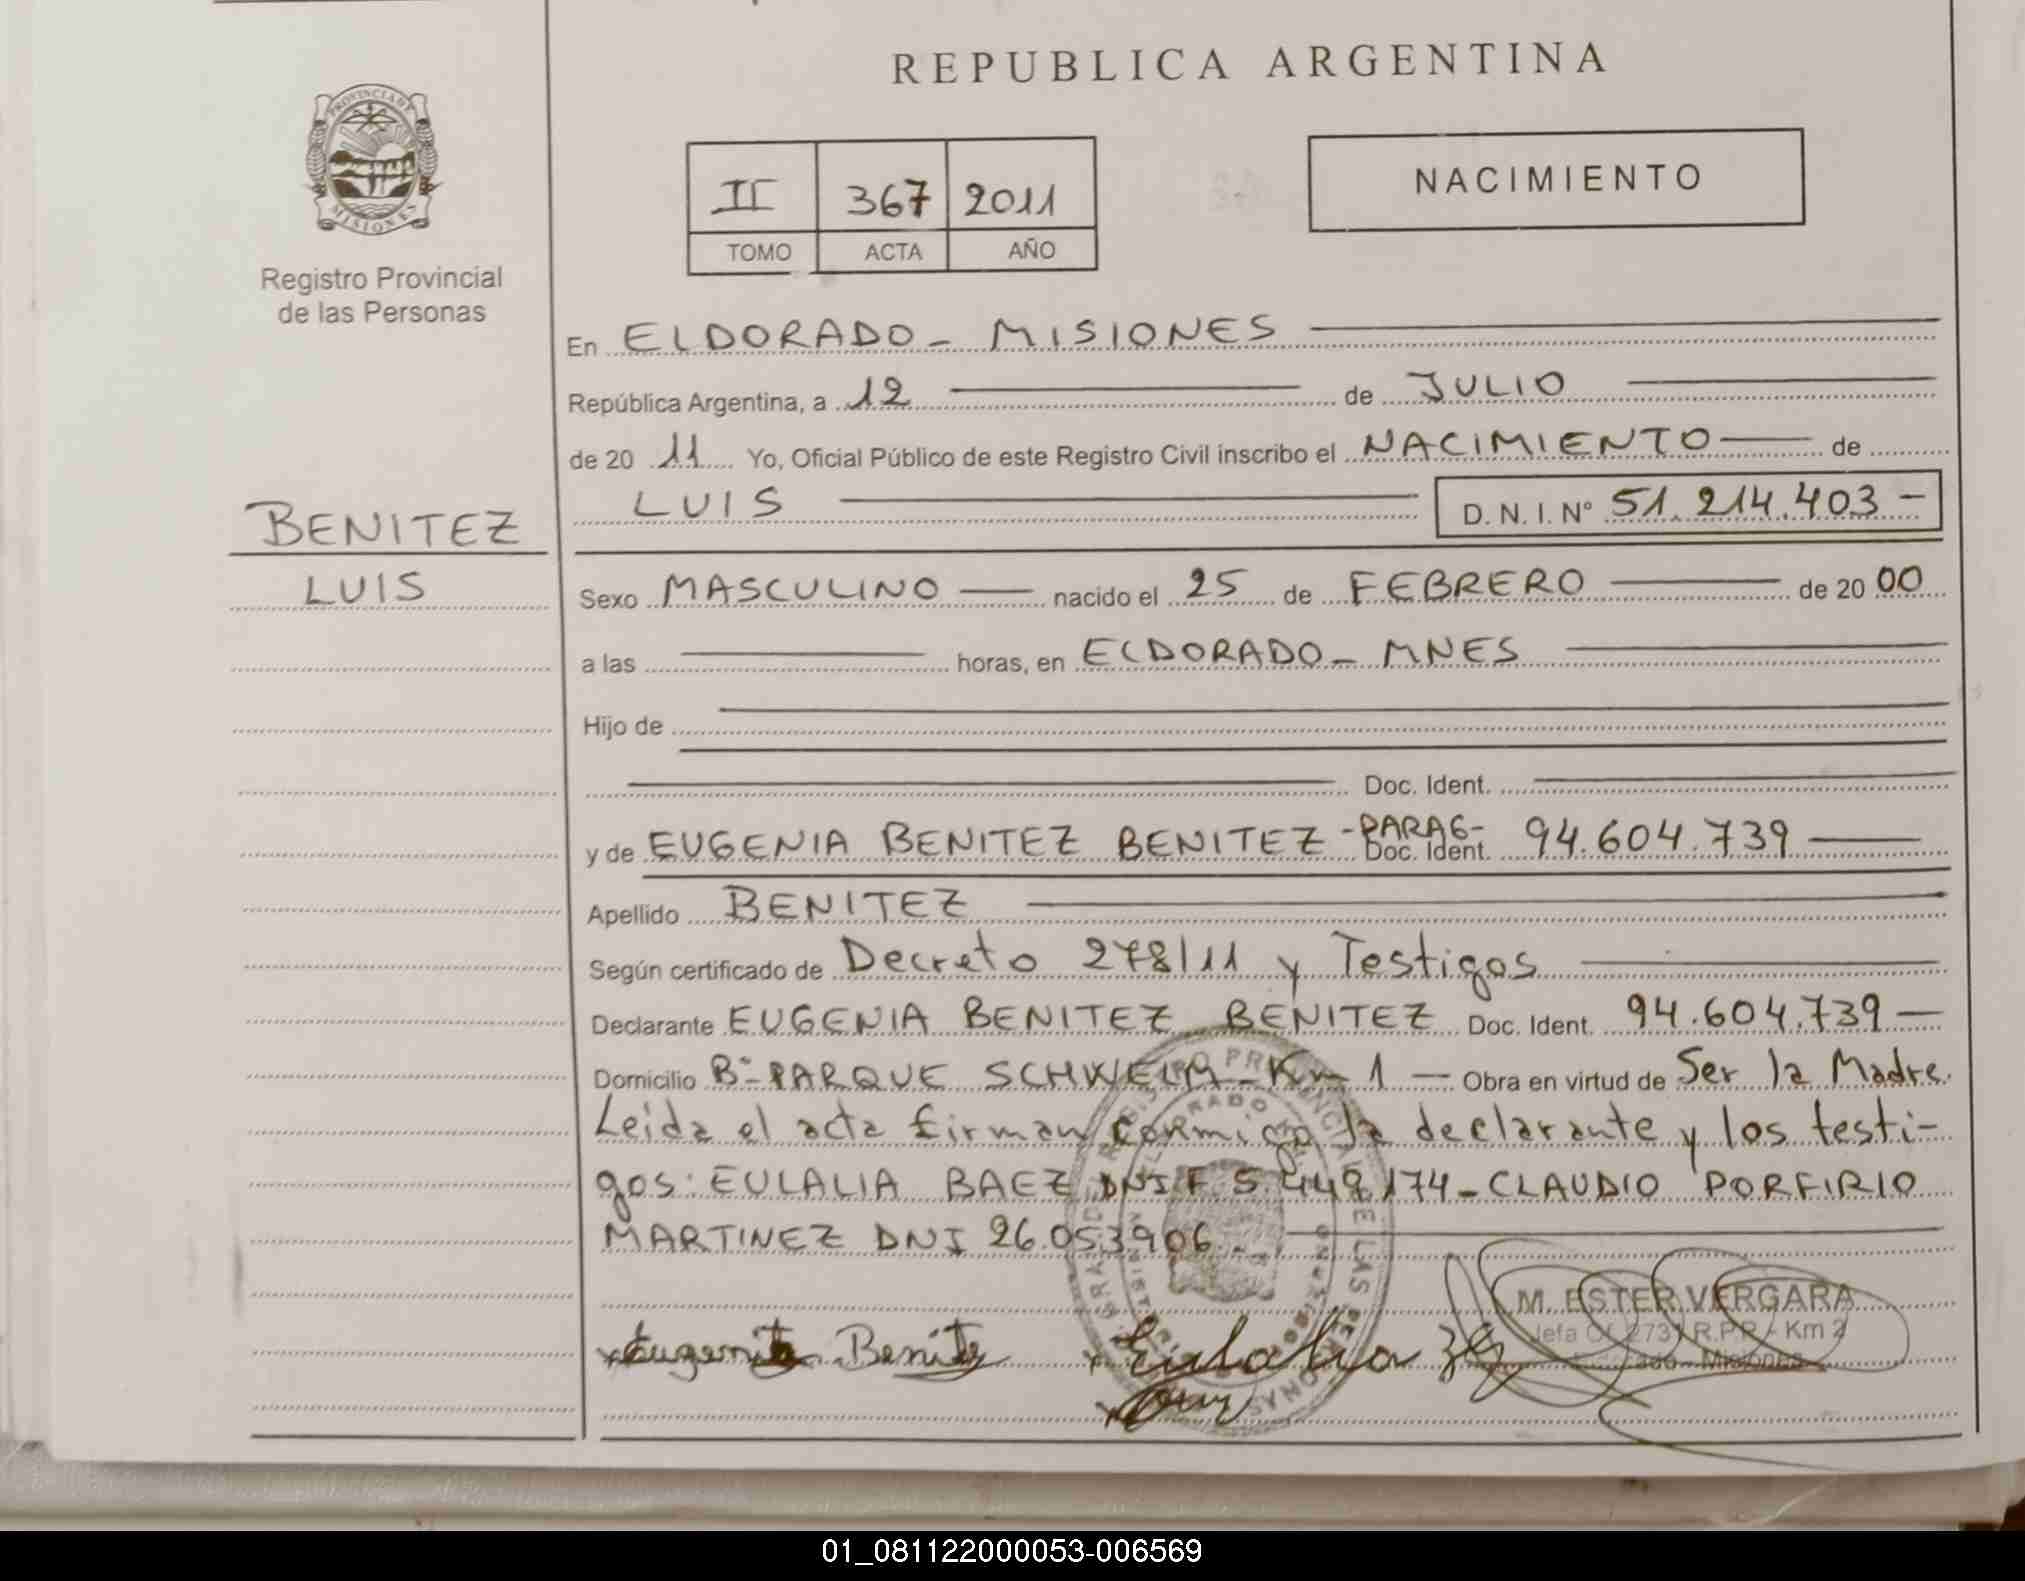 REPUBLICA ARGENTINA
PROVINCIA DE
MISIONES
Registro Provincial
de las Personas
II 367 2011
TOMO ACTA AÑO
NACIMIENTO
En ELDORADO - MISIONES
República Argentina, a 12 de JULIO
de 20 11 Yo, Oficial Público de este Registro Civil inscribo el NACIMIENTO de
LUIS D.N.I. Nº 51.214.403 -
BENITEZ
LUIS
Sexo MASCULINO nacido el 25 de FEBRERO de 20 00
a las horas, en ELDORADO - MNES
Hijo de
Doc. Ident.
y de EUGENIA BENITEZ BENITEZ - PARAG- Doc. Ident. 94.604.739
Apellido BENITEZ
Según certificado de Decreto 278/11 y Testigos
Declarante EUGENIA BENITEZ BENITEZ Doc. Ident. 94.604.739
Domicilio Bº PARQUE SCHWELM - Km 1 Obra en virtud de Ser la Madre.
Leida el acta firman conmigo la declarante y los testi-
gos: EULALIA BAEZ DNI F 5.449.174 - CLAUDIO PORFIRIO
MARTINEZ DNI 26.053.906.
M. ESTER VERGARA
Jefa Of. 2731 R.P.P. - Km 2
Misiones
Eugenia Benitez Eulalia
01_081122000053-006569